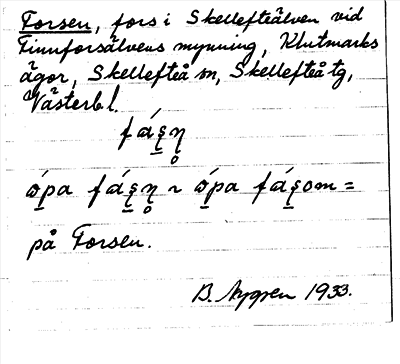 Forsen, fors i Skellefteälven vid
Finnforsälvens mynning, Klutmarks
ägor, Skellefteå sn, Skellefteå tg,
Västerbl.
fá̱s̱n̥
ó̱pa fá̱s̱n̥ ~ ó̱pa fá̱s̱om =
på Forsen.
B. Nygren 1933.